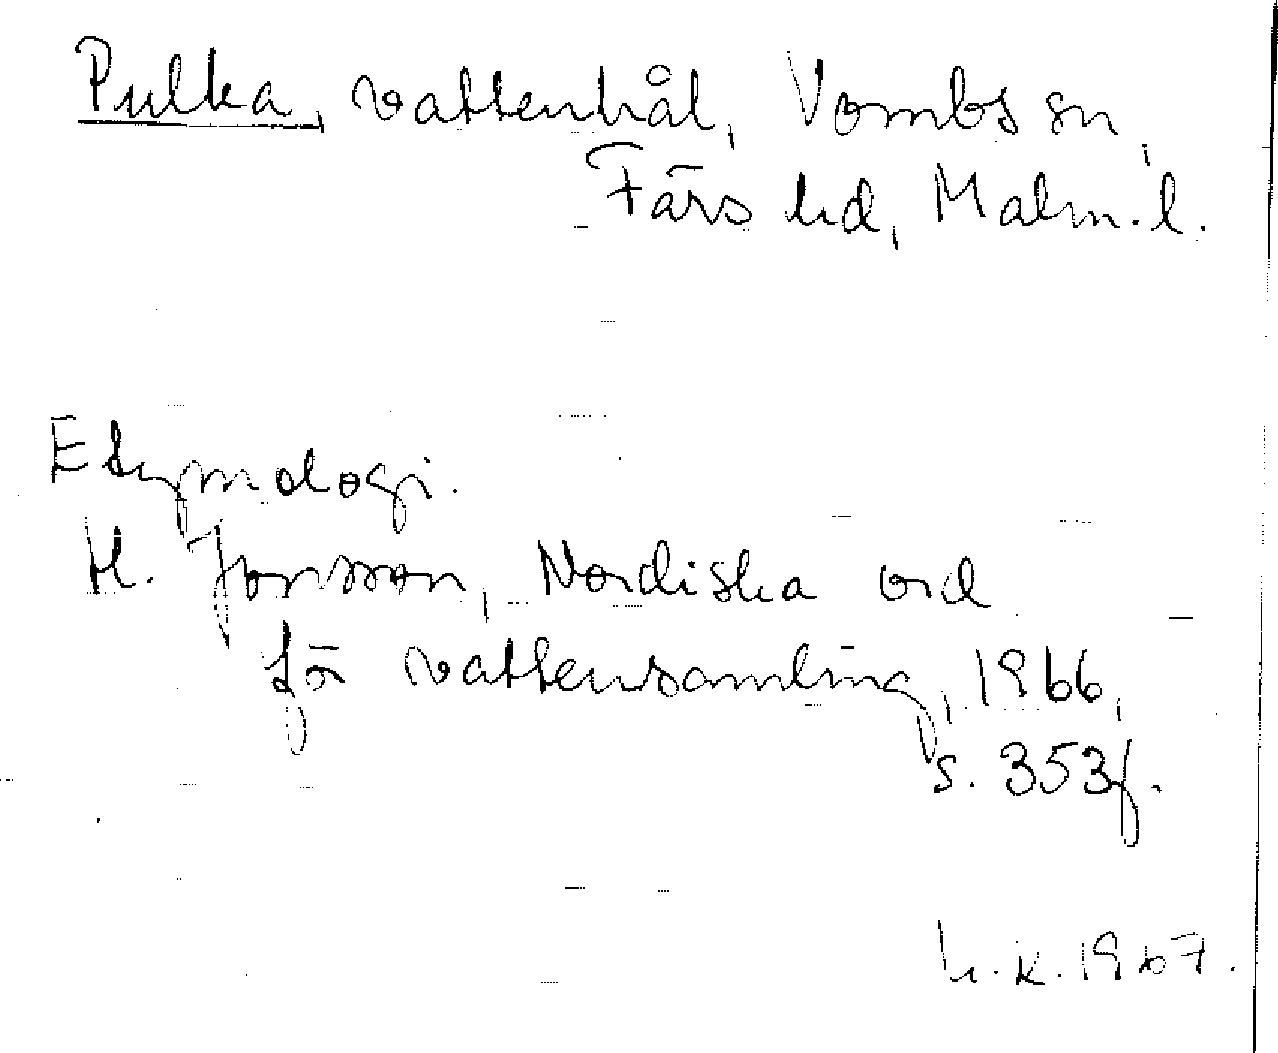 Pulka, vattenhål, Vombs sn,
Färs hd, Malm. l.
Etymologi.
H. Jonsson, Nordiska ord
för vattensamling, 1966,
s. 353f.
h.k. 1967.